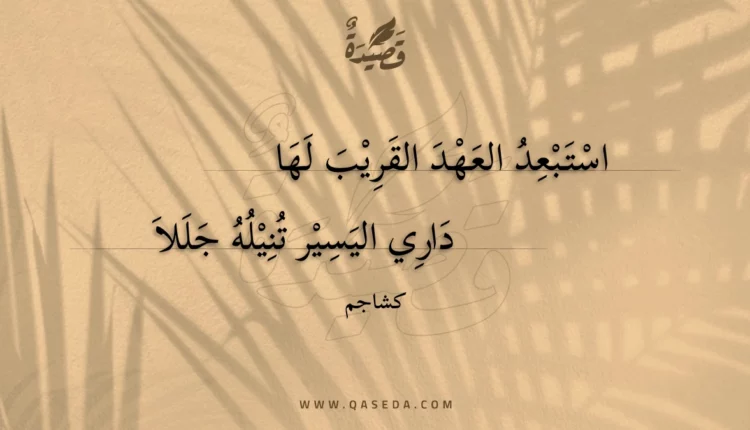 قَصِيْدَةٌ
اسْتَبْعِدُ العَهْدَ القَرِيْبَ لَهَا
دَارِي اليَسِيْر تُنِيْلُهُ جَلَلاَ
كشاجم
WWW.QASEDA.COM